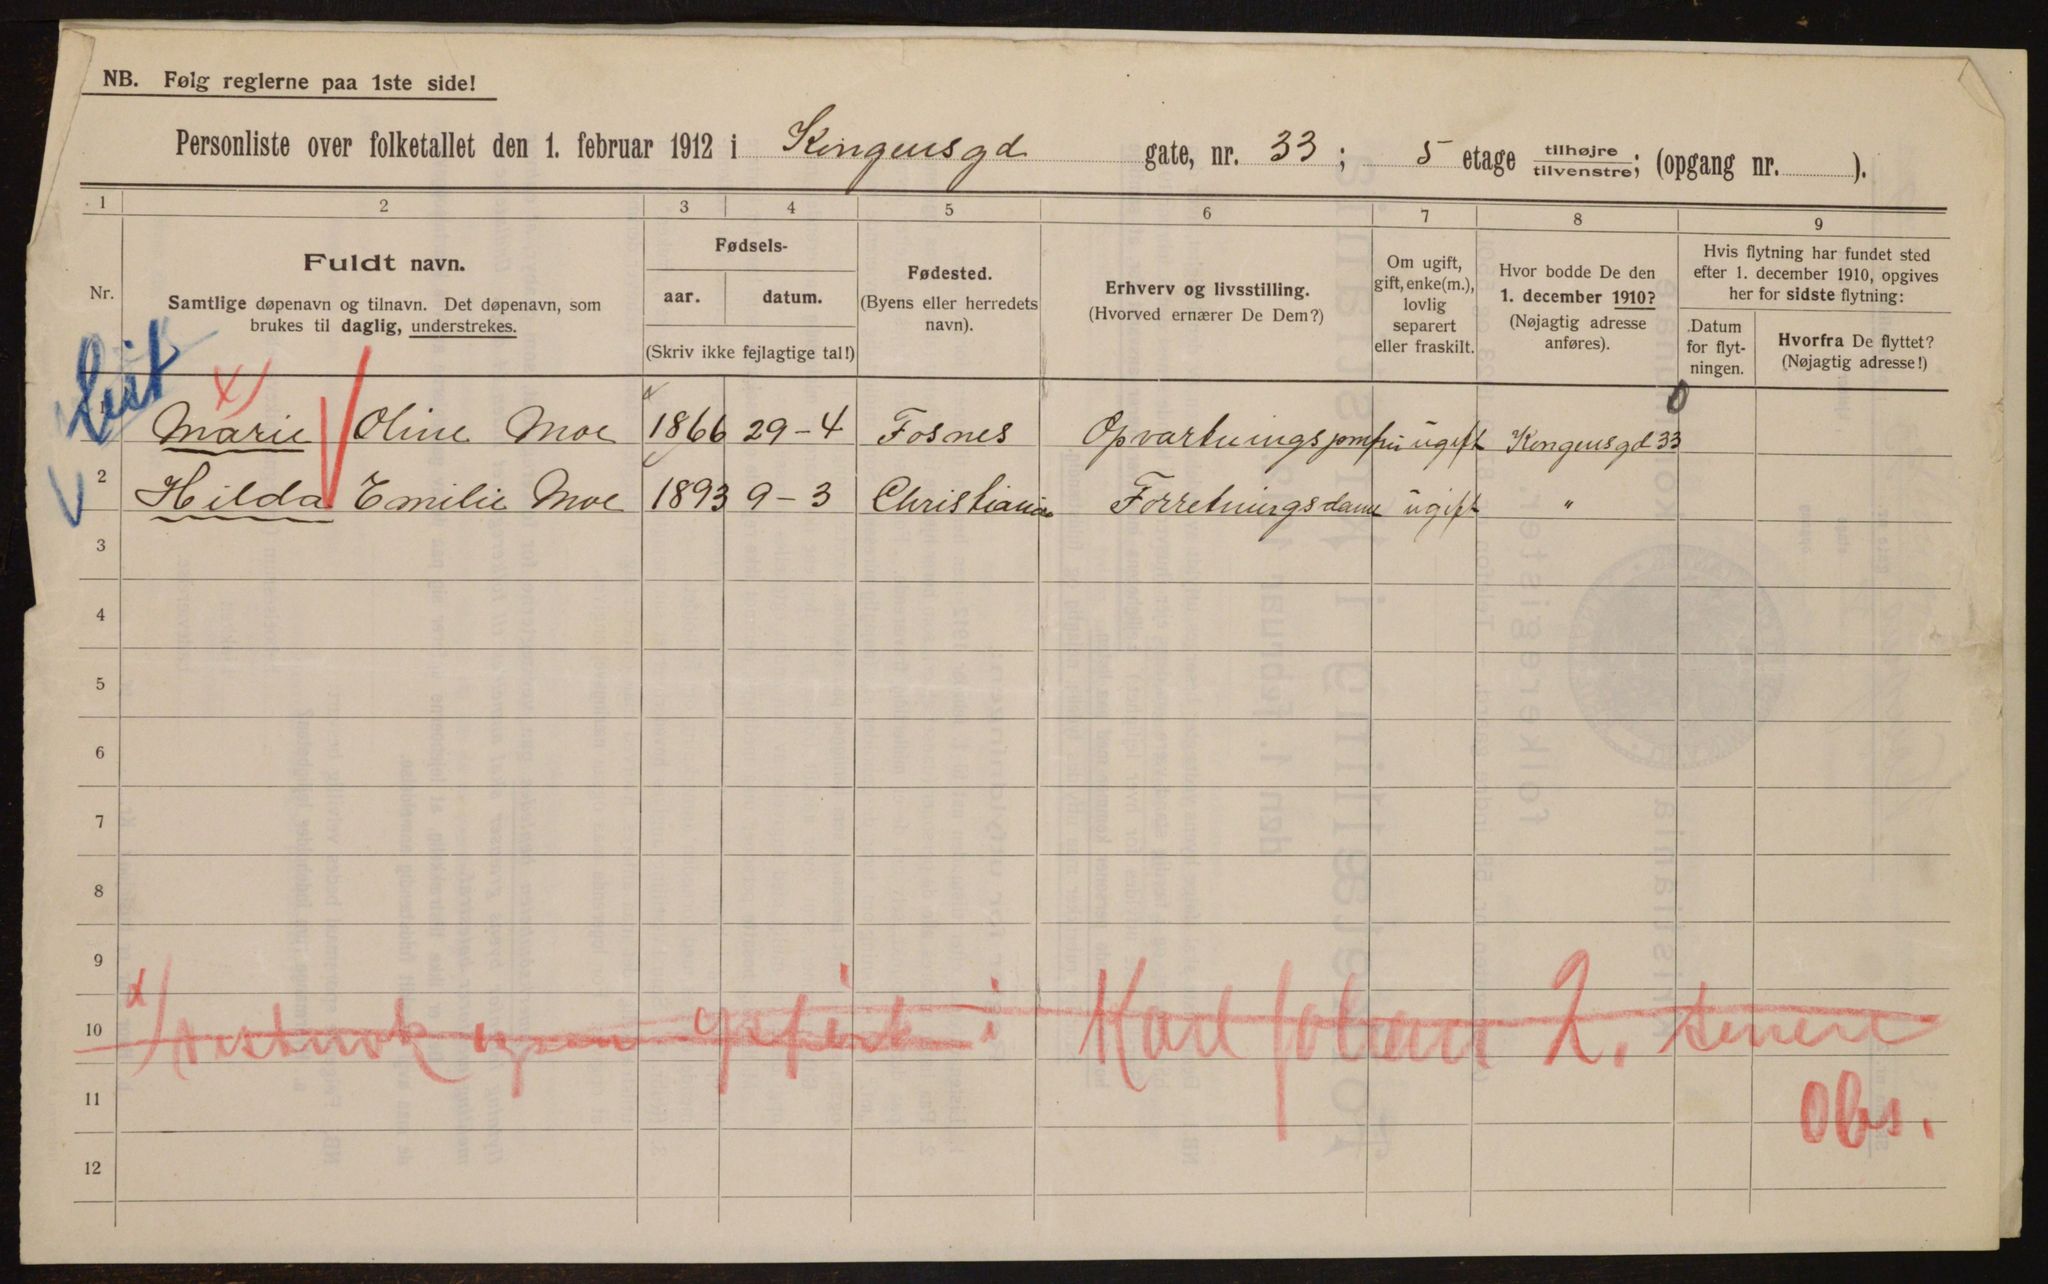 NB. Følg reglerne paa 1ste side!
Personliste over folketallet den 1. februar 1912 i Kongensgd gate, nr. 33; 5 etage tilhøjre/tilvenstre; (opgang nr. ).
1 2 3 4 5 6 7 8 9
Nr.
Fuldt navn.
Samtlige døpenavn og tilnavn. Det døpenavn, som
brukes til daglig, understrekes.
Fødsels-
aar. datum.
(Skriv ikke fejlagtige tal!)
Fødested.
(Byens eller herredets
navn).
Erhverv og livsstilling.
(Hvorved ernærer De Dem?)
Om ugift,
gift, enke(m.),
lovlig
separert
eller fraskilt.
Hvor bodde De den
1. december 1910?
(Nøjagtig adresse
anføres).
Hvis flytning har fundet sted
efter 1. december 1910, opgives
her for sidste flytning:
Datum
for flyt-
ningen.
Hvorfra De flyttet?
(Nøjagtig adresse!)
x
0
Marie Oline Moe 1866 29-4 Fosnes Opvartningsjomfru ugift Kongensgd 33
2 Hilda Emilie Moe 1893 9-3 Christiania Forretningsdame ugift "
3
4
5
6
7
8
9
x
10 Karl Johan 2.
11 Obs.
12